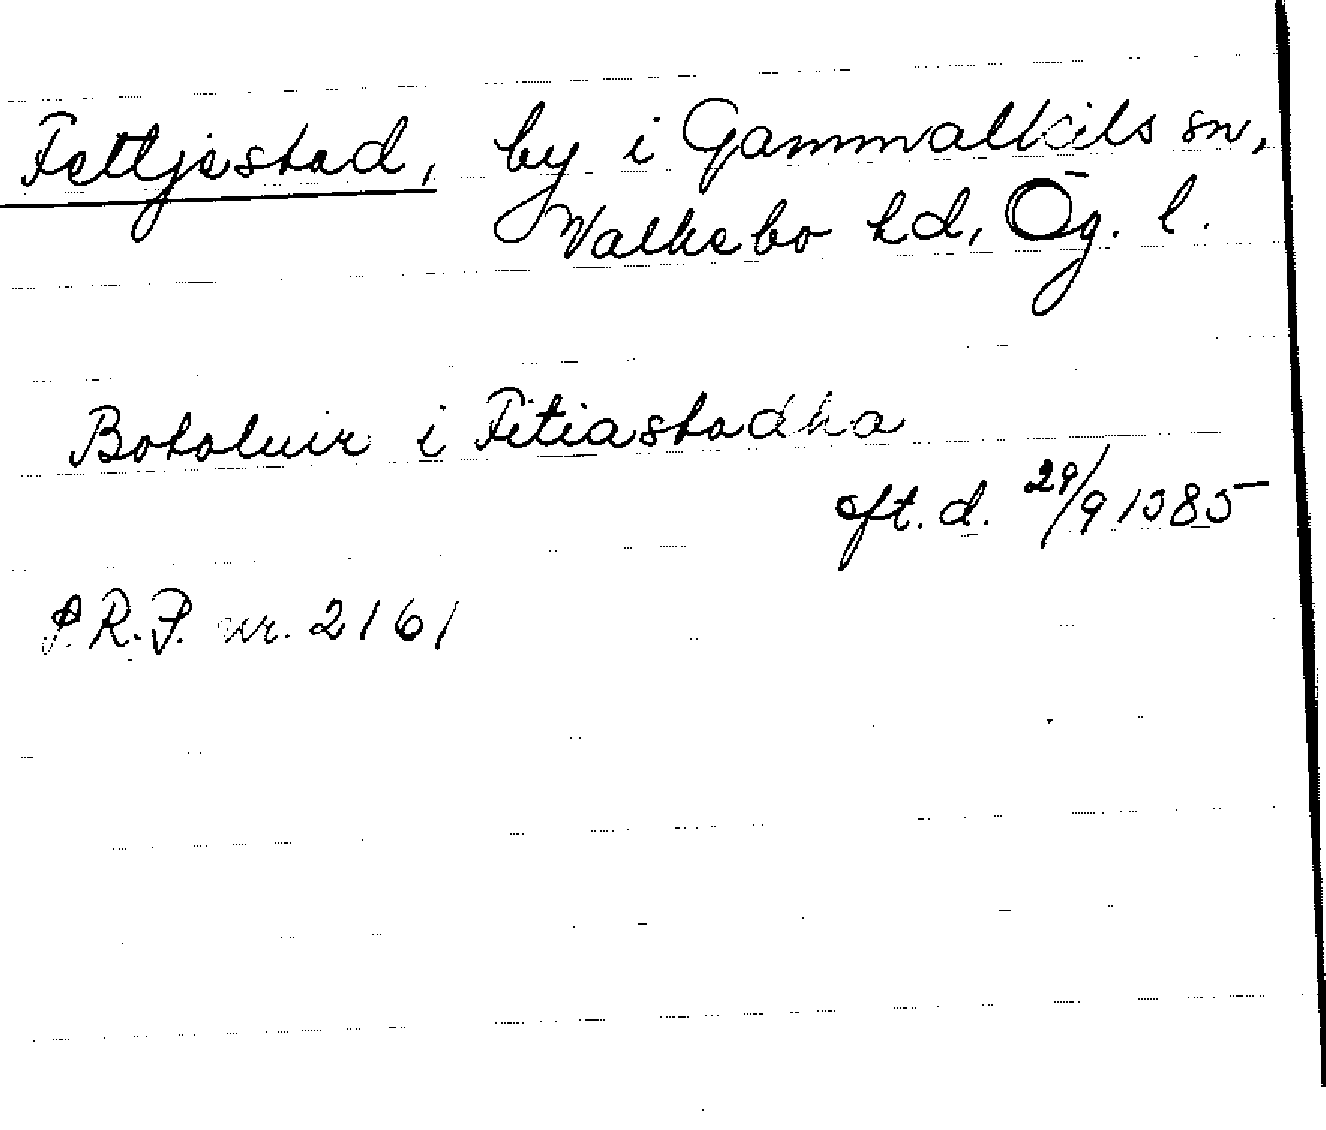 Fettjestad, by i Gammalkils sn,
Valkebo hd, Ög. l.
Botoluir i Fitiastadha
eft. d. 29/9 1385
S.R.P. nr. 2161